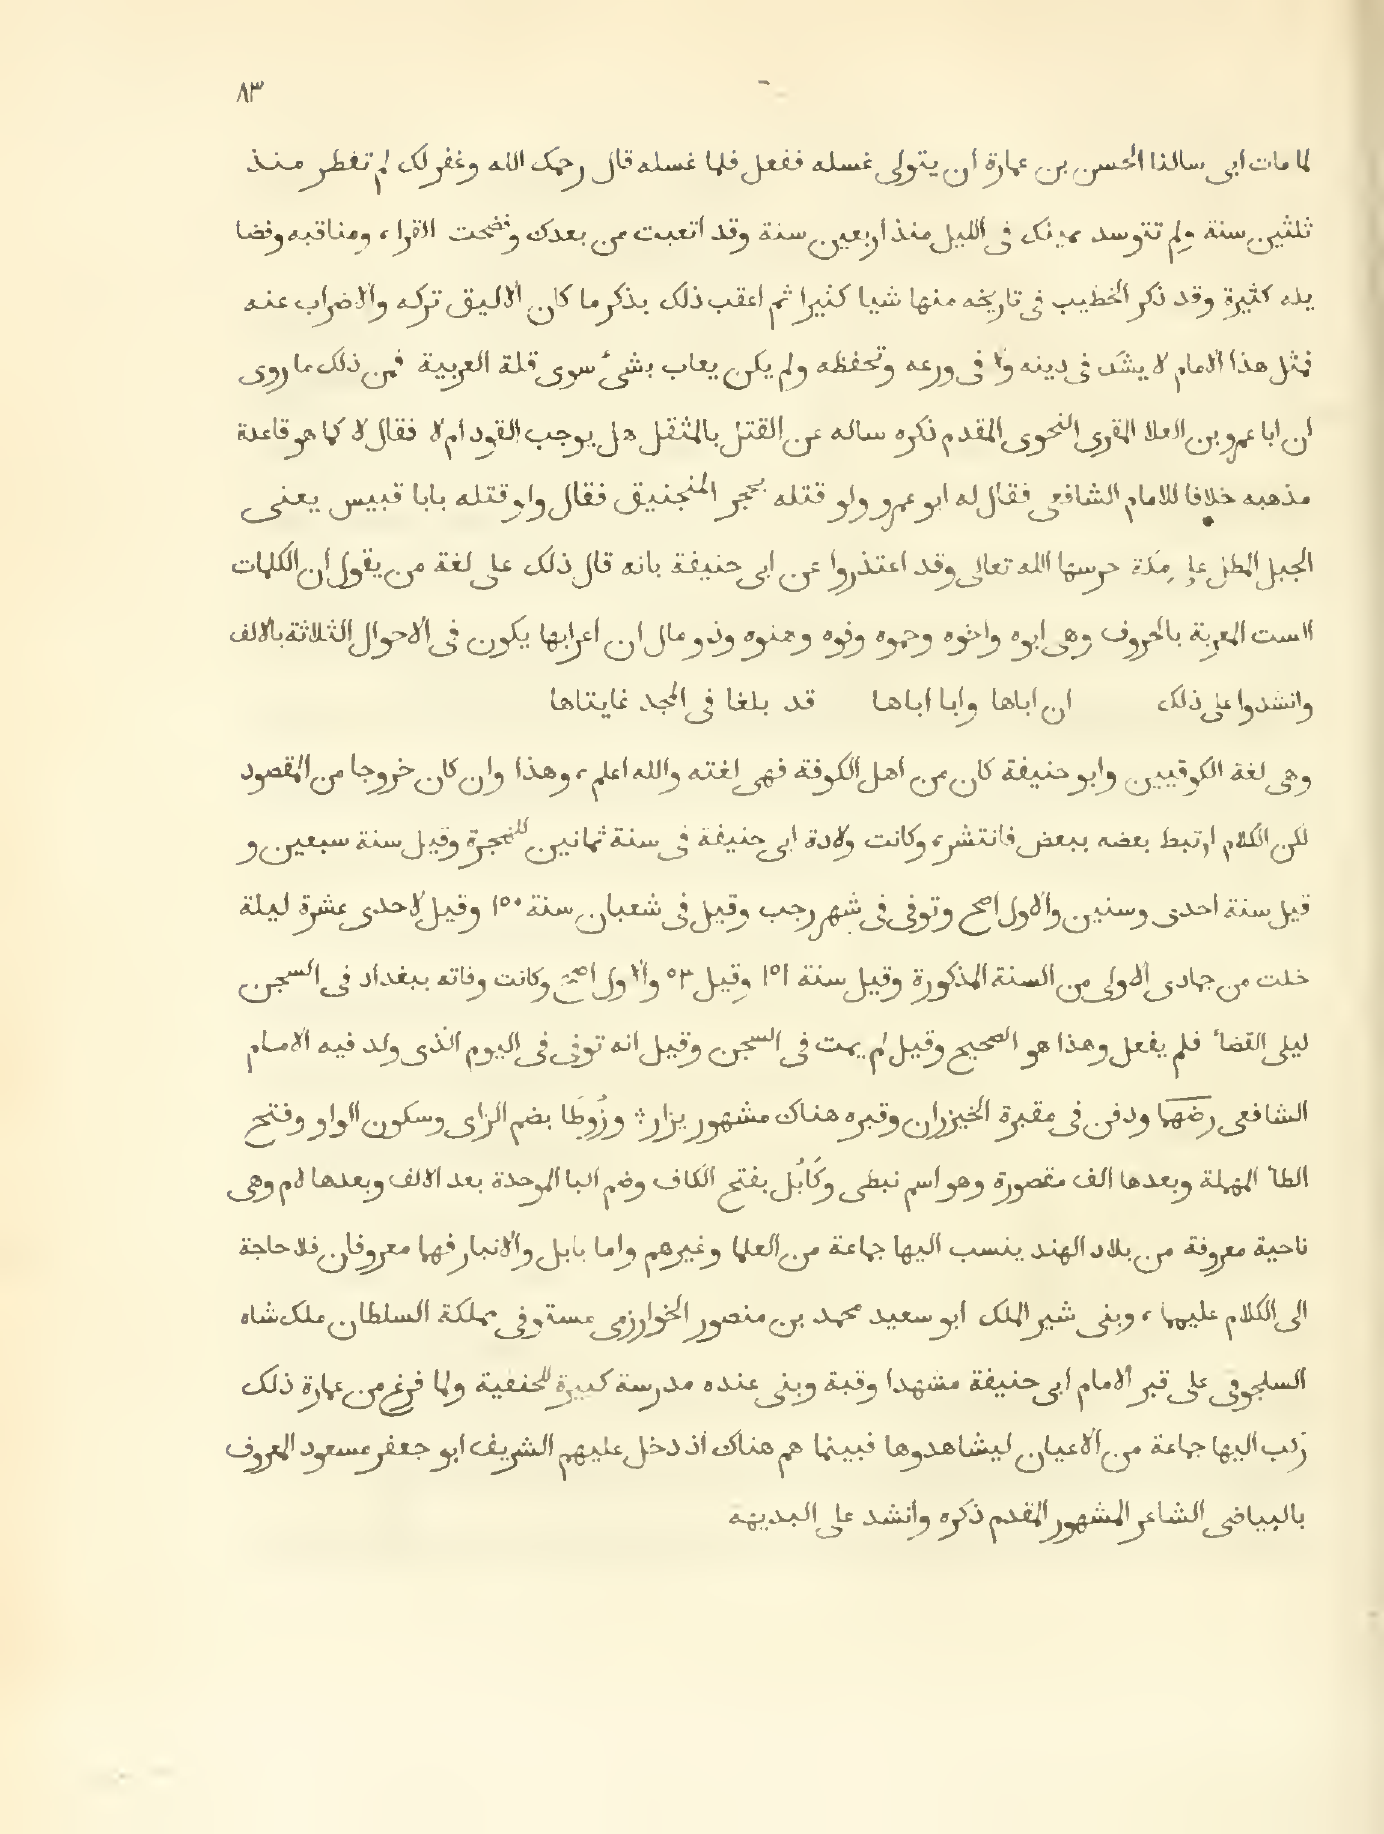 ٨٣
لما مات ابى سالنا الحسن بن عمارة ان يتولى غسله ففعل فلما غسله قال رحمك الله وغفر لك لم تفطر منذ
ثلثين سنة ولم تتوسد يمينك فى الليل منذ اربعين سنة وقد اتعبت من بعدك وفضحت القراء، ومناقبه وفضا
يله كثيرة وقد ذكر الخطيب فى تاريخه منها شيا كثيرا ثم اعقب ذلك بذكر ما كان الاليق تركه والاضراب عنه
فمثل هذا الامام لا يشك فى دينه ولا فى ورعه وتحفظه ولم يكن يعاب بشىء سوى قلة العربية فمن ذلك ما روى
ان ابا عمرو بن العلا المقرى النحوى المقدم ذكره ساله عن القتل بالمثقل هل يوجب القود ام لا فقال لا كما هو قاعدة
مذهبه خلافا للامام الشافعى فقال له ابو عمرو ولو قتله بحجر المنجنيق فقال ولو قتله بابا قبيس يعنى
الجبل المطل على مكة حرسها الله تعالى وقد اعتذروا عن ابى حنيفة بانه قال ذلك على لغة من يقول ان الكلمات
الست المعربة بالحروف وهى ابوه واخوه وحموه وفوه وهنوه وذو مال ان اعرابها يكون فى الاحوال الثلاثة بالالف
وانشدوا على ذلك ان اباها وابا اباها قد بلغا فى المجد غايتاها
وهى لغة الكوفيين وابو حنيفة كان من اهل الكوفة فهى لغته والله اعلم، وهذا وان كان خروجا من المقصود
لكن الكلام ارتبط بعضه ببعض فانتشر، وكانت ولادة ابى حنيفة فى سنة ثمانين للهجرة وقيل سنة سبعين و
قيل سنة احدى وستين والاول اصح وتوفى فى شهر رجب وقيل فى شعبان سنة ١٥٠ وقيل لاحدى عشرة ليلة
خلت من جمادى الاولى من السنة المذكورة وقيل سنة ١٥١ وقيل ٥٣ والاول اصح وكانت وفاته ببغداد فى السجن
ليلى القضاء فلم يفعل وهذا هو الصحيح وقيل لم يمت فى السجن وقيل انه توفى فى اليوم الذى ولد فيه الامام
الشافعى رضهما ودفن فى مقبرة الخيزران وقبره هناك مشهور يزار ؞ وزُوطَا بضم الزاى وسكون الواو وفتح
الطاء المهملة وبعدها الف مقصورة وهو اسم نبطى وكَابُل بفتح الكاف وضم البا الموحدة بعد الالف وبعدها لام وهى
ناحية معروفة من بلاد الهند ينسب اليها جماعة من العلما وغيرهم واما بابل والانبار فهما معروفان فلا حاجة
الى الكلام عليهما، وبنى شير الملك ابو سعيد محمد بن منصور الخوارزمى مستوفى مملكة السلطان ملك شاه
السلجوقى على قبر الامام ابى حنيفة مشهدا وقبة وبنى عنده مدرسة كبيرة للحنفية ولما فرغ من عمارة ذلك
ركب اليها جماعة من الاعيان ليشاهدوها فبينما هم هناك اذ دخل عليهم الشريف ابو جعفر مسعود المعروف
بالبياضى الشاعر المشهور المقدم ذكره وانشد على البديهه